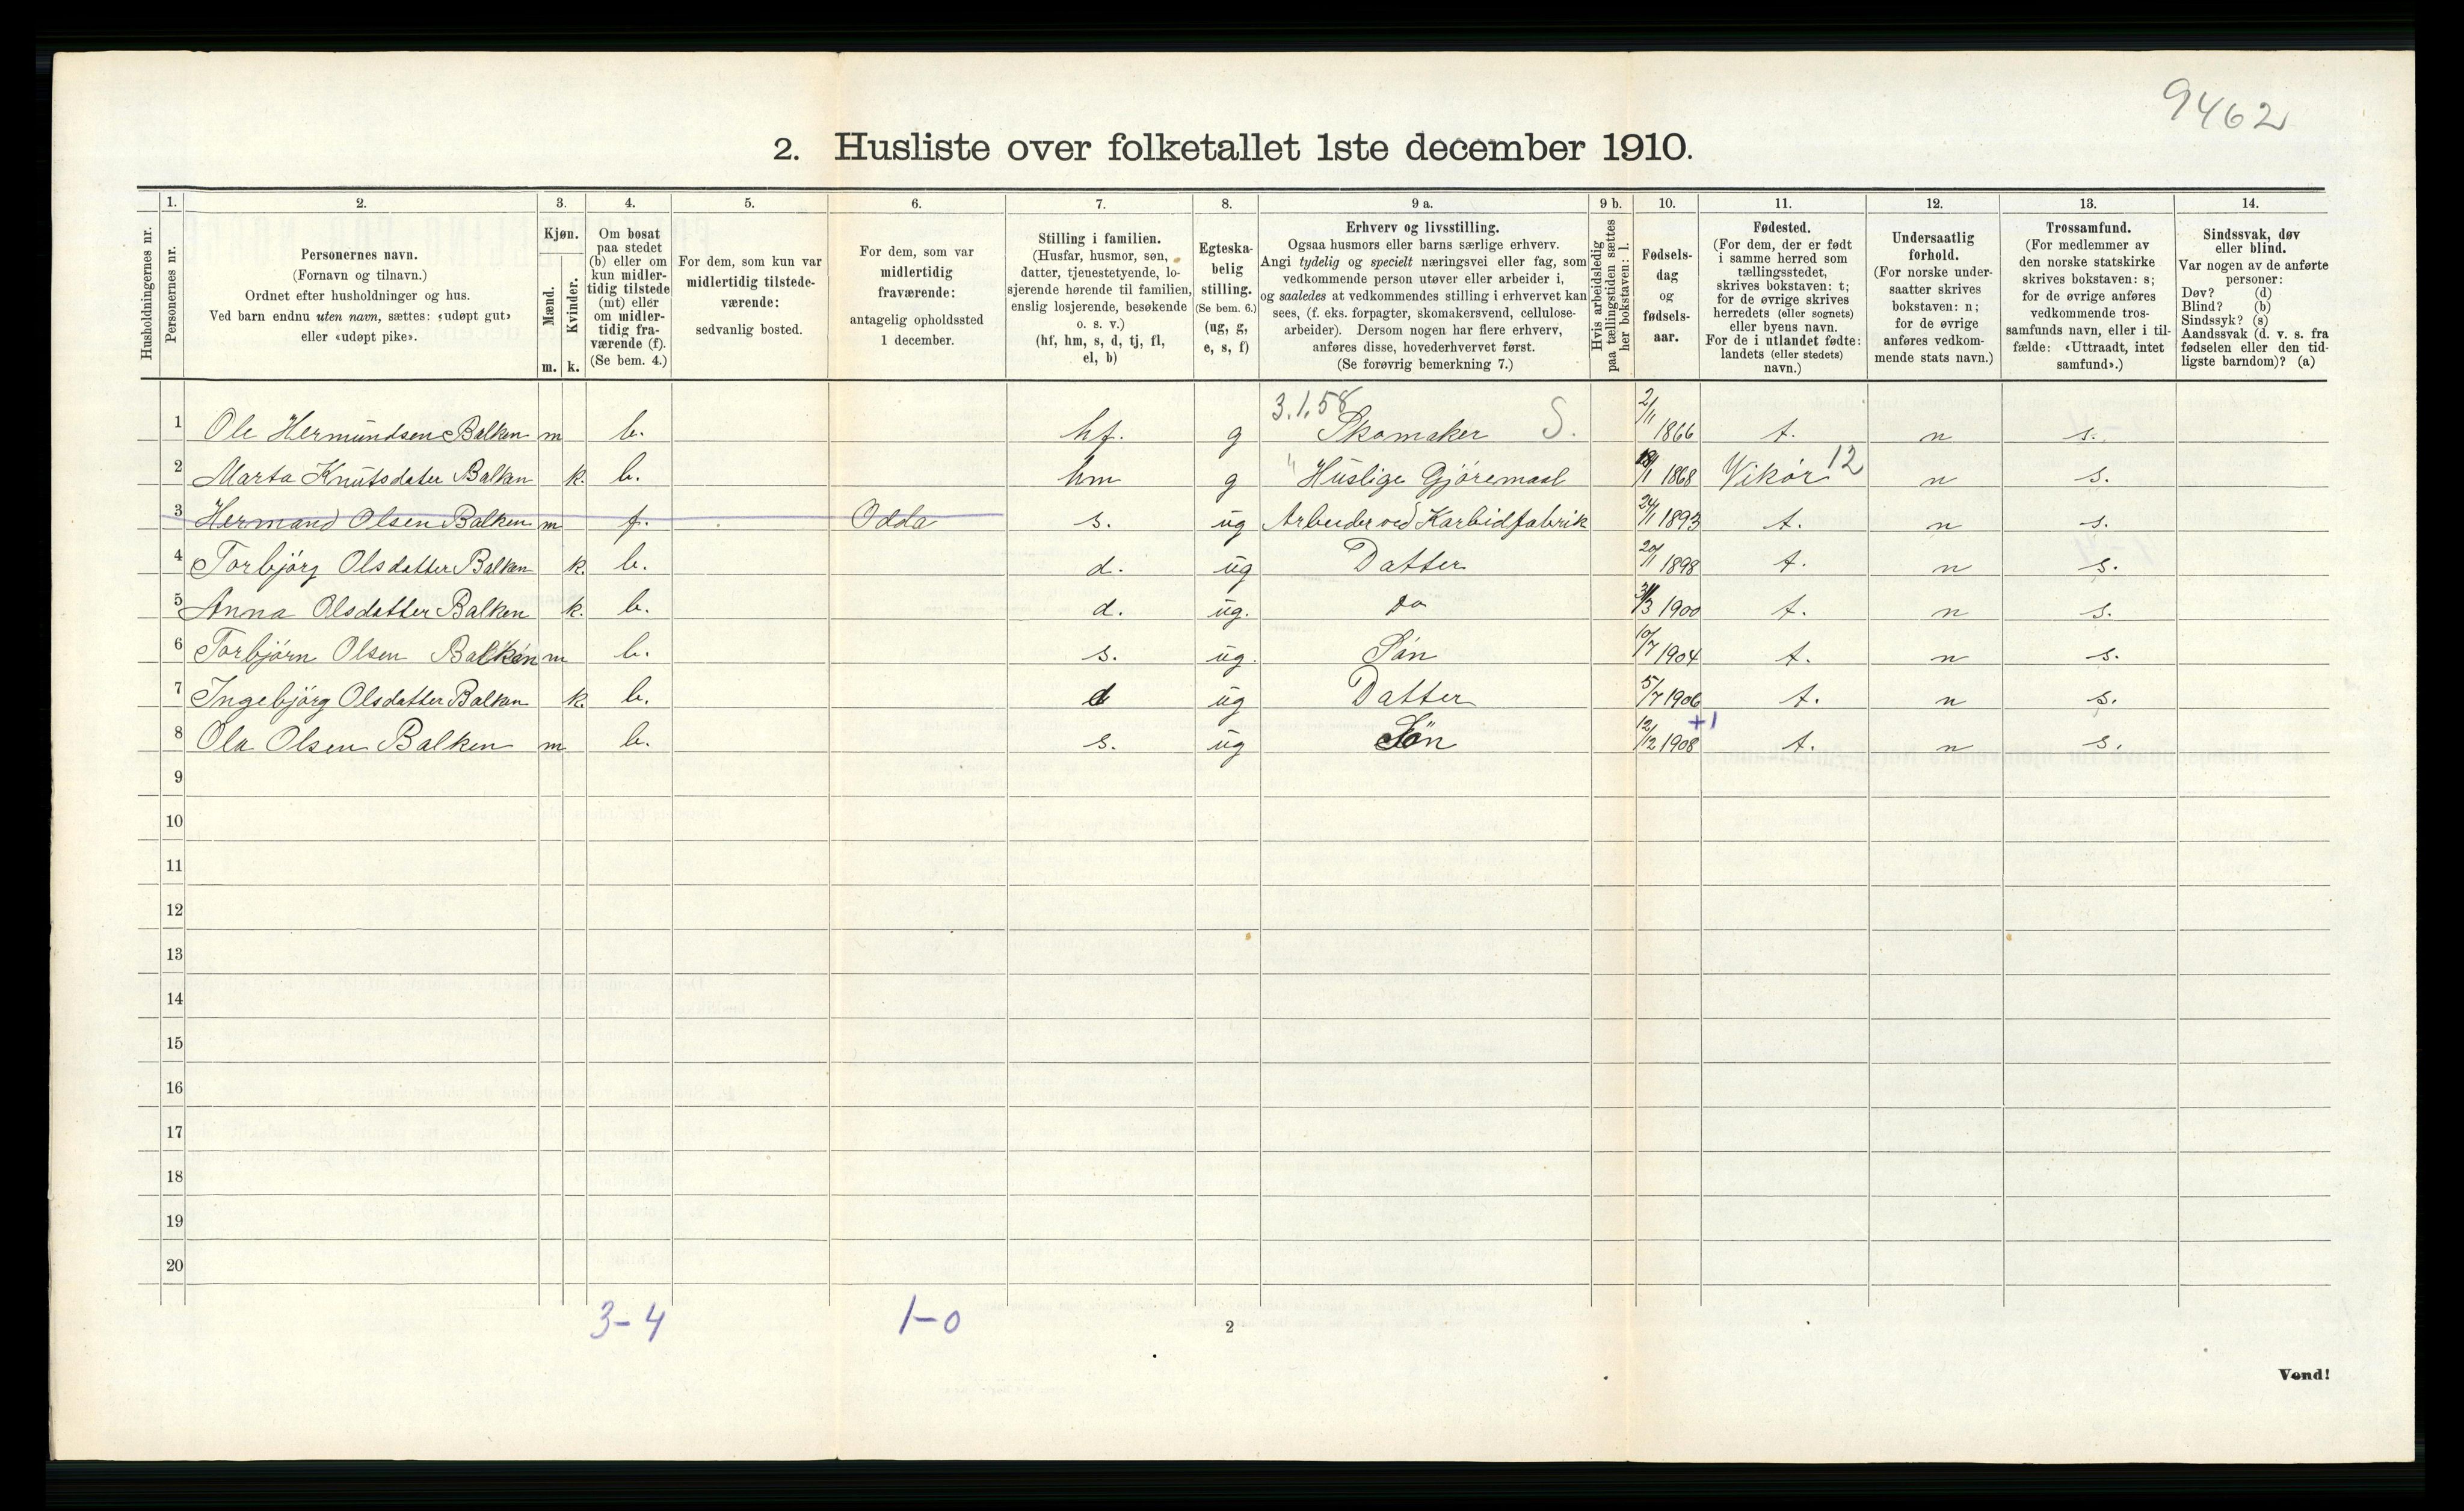 9462
2. Husliste over folketallet 1ste december 1910.
1. 2. 3. 4. 5. 6. 7. 8. 9 a. 9 b. 10. 11. 12. 13. 14.
Husholdningernes nr.
Personernes nr.
Personernes navn.
(Fornavn og tilnavn.)
Ordnet efter husholdninger og hus.
Ved barn endnu uten navn, sættes: «udøpt gut»
eller «udøpt pike».
Kjøn.
Mænd.
Kvinder.
m. k.
Om bosat
paa stedet
(b) eller om
kun midler-
tidig tilstede
(mt) eller
om midler-
tidig fra-
værende (f).
(Se bem. 4.)
For dem, som kun var
midlertidig tilstede-
værende:
sedvanlig bosted.
For dem, som var
midlertidig
fraværende:
antagelig opholdssted
1 december.
Stilling i familien.
(Husfar, husmor, søn,
datter, tjenestetyende, lo-
sjerende hørende til familien,
enslig losjerende, besøkende
o. s. v.)
(hf, hm, s, d, tj, fl,
el, b)
Egteska-
belig
stilling.
(Se bem. 6.)
(ug, g,
e, s, f)
Erhverv og livsstilling.
Ogsaa husmors eller barns særlige erhverv.
Angi tydelig og specielt næringsvei eller fag, som
vedkommende person utøver eller arbeider i,
og saaledes at vedkommendes stilling i erhvervet kan
sees, (f. eks. forpagter, skomakersvend, cellulose-
arbeider). Dersom nogen har flere erhverv,
anføres disse, hovederhvervet først.
(Se forøvrig bemerkning 7.)
Hvis arbeidsledig
paa tællingstiden sættes
her bokstaven: l.
Fødsels-
dag
og
fødsels-
aar.
Fødested.
(For dem, der er født
i samme herred som
tællingsstedet,
skrives bokstaven: t;
for de øvrige skrives
herredets (eller sognets)
eller byens navn.
For de i utlandet fødte:
landets (eller stedets)
navn.)
Undersaatlig
forhold.
(For norske under-
saatter skrives
bokstaven: n;
for de øvrige
anføres vedkom-
mende stats navn.)
Trossamfund.
(For medlemmer av
den norske statskirke
skrives bokstaven: s;
for de øvrige anføres
vedkommende tros-
samfunds navn, eller i til-
fælde: «Uttraadt, intet
samfund».)
Sindssvak, døv
eller blind.
Var nogen av de anførte
personer:
Døv? (d)
Blind? (b)
Sindssyk? (s)
Aandssvak (d. v. s. fra
fødselen eller den tid-
ligste barndom)? (a)
3.1.58
1 Ole Hermundsen Balken m b. hf. g Skomaker S. 2/11 1866 t. n s.
2 Marta Knutsdater Balken k. b. hm g " Huslige Gjöremaal 1868 Vikör 12 n s.
3 Hermand Olsen Balken m f. Odda s. ug Arbeider ved Karbidfabrik 24/11 1893 t. n s.
4 Torbjörg Olsdatter Balken k. b. d. ug Datter 20/11 1898 t. n s.
5 Anna Olsdatter Balken k. b. d. ug. Do 1900 t. n s.
6 Torbjörn Olsen Balken m b. s. ug. Sön 10/7 1904 t. n s.
7 Ingebjörg Olsdatter Balken k. b. d ug Datter 5/7 1906 t. n s.
+1
8 Ola Olsen Balken m b. s. ug Sön 12/12 1908 t. n s.
9
10
11
12
13
14
15
16
17
18
19
20
3-4 1-0
2
Vend!